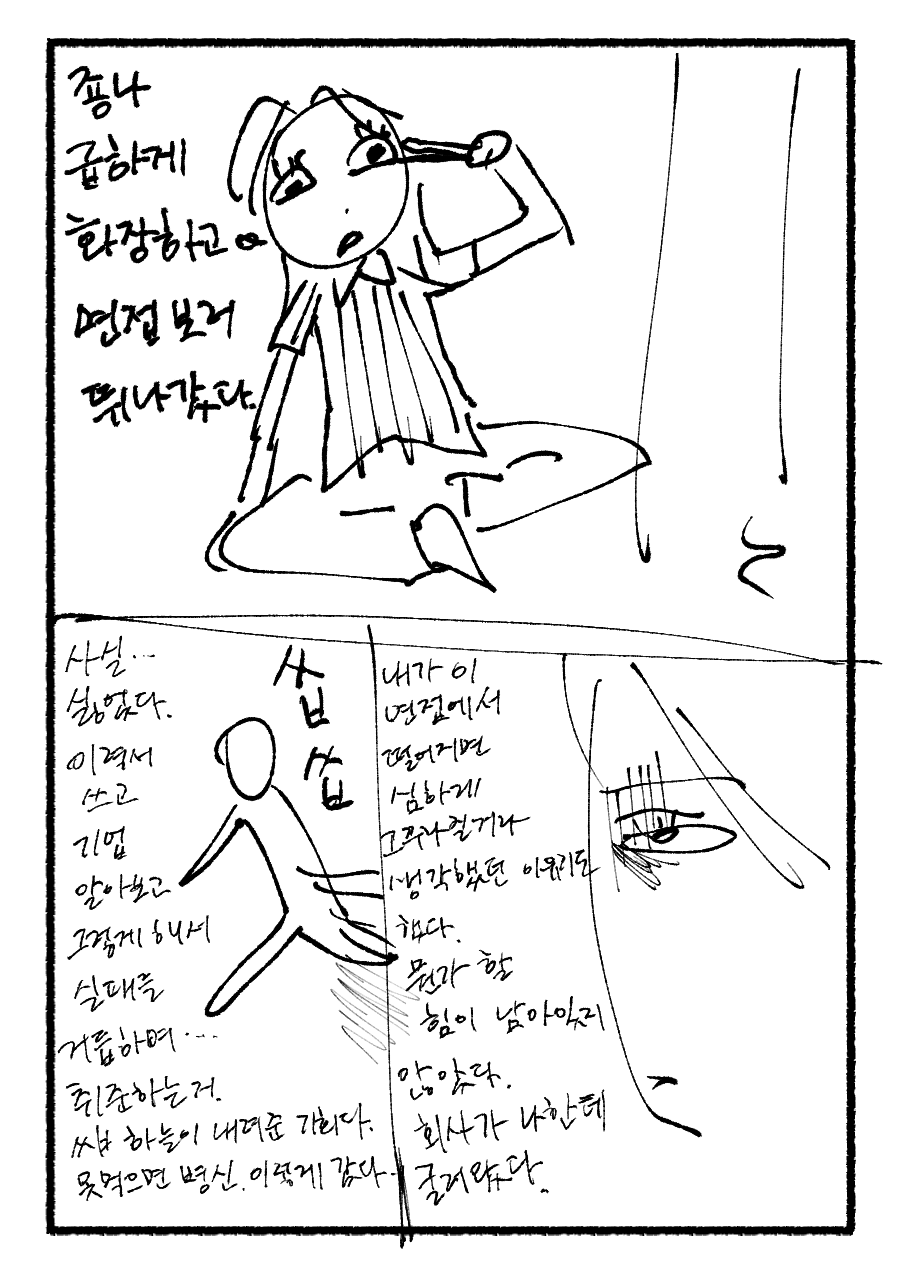 죵나
급하게
화장하고
면접 보러
뛰나갔다.
사실...
싫었다.
이력서
쓰고
기업
알아보고
그렇게 해서
실패를
거듭하며...
취준하는거.
씨바 하늘이 내려준 기회다.
못먹으면 병신. 이렇게 갔다.
씁
씁
내가 이
면접에서
떨어지면
심하게
고꾸라질거라
생각했던 이유리도
했다.
뭔가 할
힘이 남아있지
않았다.
회사가 나한테
굴러왔다.